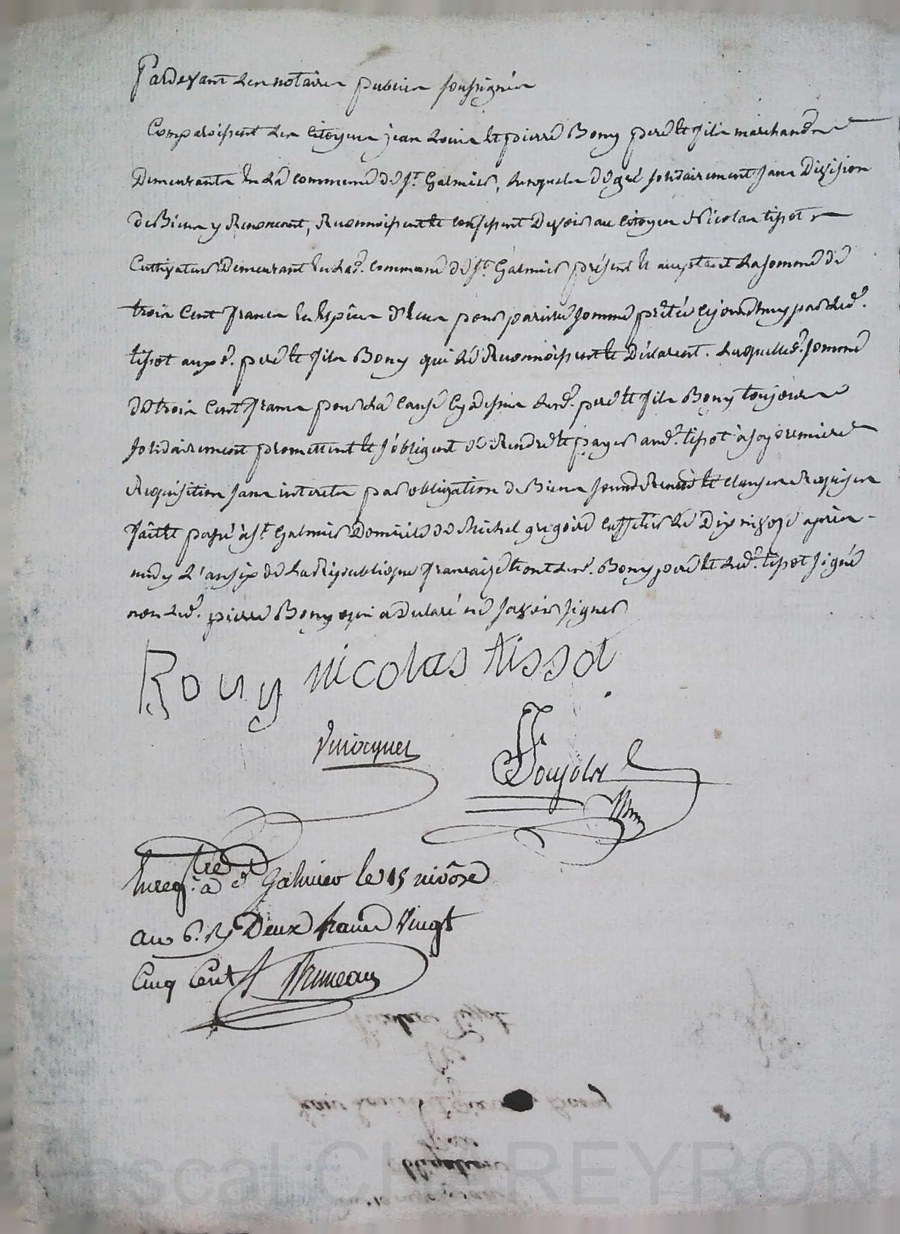 Pardevant les notaires publics soussignés
Comparoissent les Citoyens jean Louis et pierre Bony pere et fils marchands
Demeurants en la commune de St. Galmier, lesquels de gré solidairement sans Division
de Biens y Renoncent, Reconnoissent et confessent Devoir au citoyen Nicolas tissot
Cultivateur Demeurant en lad. commune de St. Galmier présent et acceptant la somme de
trois Cent francs en Espèces d'heus pour pareille somme prêtée cejourdhuy par led.
tissot aux d. pere et fils Bony qui le Reconnoissent et Déclarent. Laquelle d. somme
de trois Cent francs pour la cause cy dessus lesd. pere et fils Bony toujours
solidairement promettent et s'obligent de Rendre et payer aud. tissot à sa premiere
Requisition sans interets par obligation de Biens soumd. Renond. et clauses Requises
fait et passé à St. Galmier Domicile de Michel gregoire caffetier le Dix nivose après
midy l'an six de la République francaize et ont lesd. Bony pere et led. tissot signé
non led. pierre Bony qui a Declaré ne savoir signer
Bony nicolas tissot
Enregtré a St Galmier le 15 nivôse
an 6. R/ Deux francs vingt
Cinq Cent
Nicolas Tissot
Jean Louis & Pierre Bony
obligation
Pascal CHAREYRON